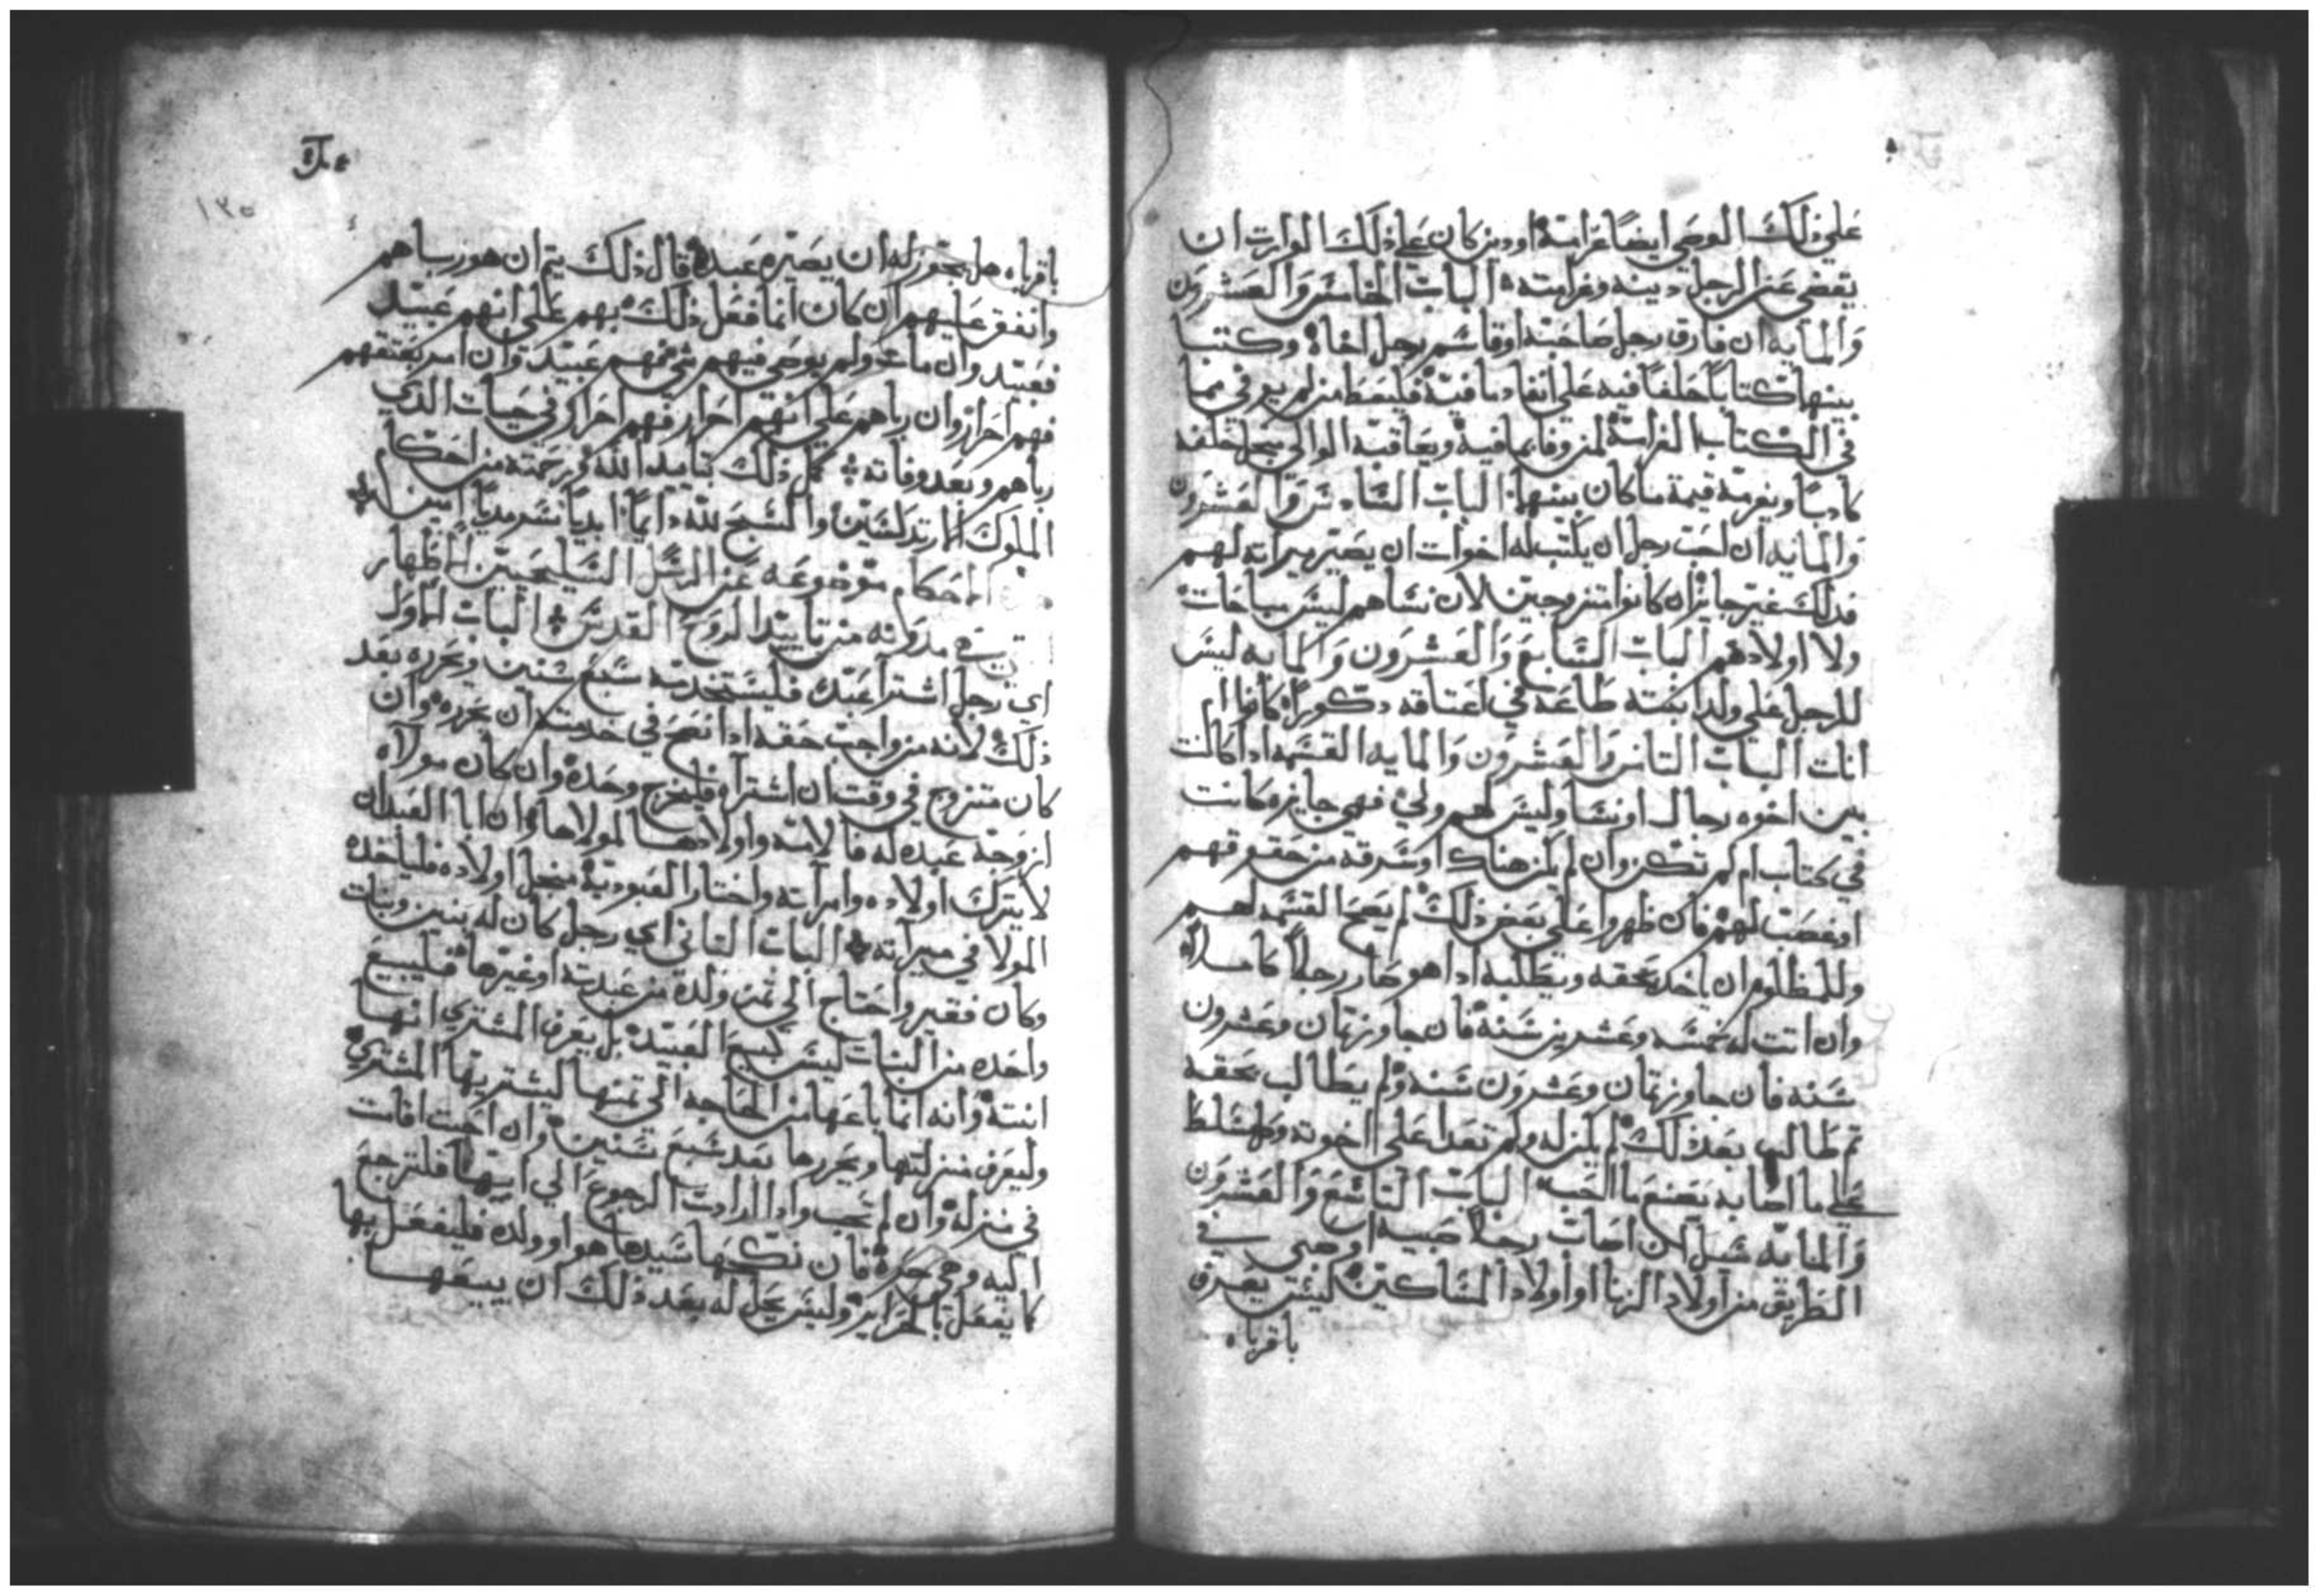 علي ذلك الوصي ايضا غرامة او دين كان علي ذلك الوارت ان
يقضي عن الرجل دينه وغرامته الباب الخامس والعشرون
والمايه ان فارق رجل صاحبه او قاسم رجل اخاه وكتبا
بينهما كتابا حلفا فيه علي انفاد ما فيه فليعط من لم يوفي مما
في الكتاب الغرامة لمن وفا بما فيه ويعاقبه الوالي بحلفه
كادبا ويغرمه قيمة ما كان بينهما الباب السادس والعشرون
والمايه ان احب رجل ان يكتب له اخوات ان يصير ميراته لهم
فدلك غير جايز ان كانوا متزوجين لان نساهم ليس مباحات
ولا اولادهم الباب السابع والعشرون والمايه ليس
للرجل علي ولد ابنته طاعه في اعتاقه دكورا كانوا ام
انات الباب التامن والعشرون والمايه القسمه اداكانت
بين اخوه رجال او نسا وليس لهم ولي فهي جايزه كانت
في كتاب ام لم تكن وان لم يكن هناك سرقه من حقوقهم
او غصب لهم فان ظهروا علي بعض ذلك لم يصح القسمه لهم
وللمظلوم ان ياخد بحقه ويطلبه ادا هو صار رجلا كاملا
وان اتت له خمسه وعشرين سنة فان جاوز تمان وعشرون
سنه فان جاوز تمان وعشرون سنه ولم يطالب بحقه
تم طالب بعد ذلك لم يكن له ولم تعدا علي اخوته
علي ما اصابه يصنع ما احب الباب التاسع والعشرون
والمايه سيل اصاب رجلا صبيه او صبي في
الطريق من اولاد الزنا او اولاد المساكين ليس يعرف
باقرباه
باقرباه هل يجوز له ان يصيره عبده قال ذلك يتم ان هو رباهم
وانفق عليهم ان كان انما فعل ذلك بهم علي انهم عبيد
فعبيد وان مات ولم يوصي فيهم شي فهم عبيد وان امر بعتقهم
فهم احرار وان رباهم علي انهم احرار فهم احرار في حيات الذي
رباهم وبعد وفاته كمل ذلك بتاييد الله ورحمته من احكا
الملوك الارتدكسيين والسبح لله دايما ابديا سرمديا امين
الاحكام موضوعه عن الرسل السليحيين الاظهار
مدوانه من تاييد الروح القدس الباب الاول
اي رجل اشترا عبد فليستخدمه سبع سنين ويحرره بعد
ذلك لانه من واجب حقه ادا نصح في خدمته ان يحرره وان
كان متزوج في وقت ان اشتراه فليخرج وحده وان كان مولاه
ازوجه عبده له فالامه واولادها لمولاها وان ابا العبد ان
لا يترك اولاده وامراته واختار العبوديه مجل اولاده فلياخده
المولا في ميراته الباب التاني اي رجل كان له بنين وبنات
وكان فقير واحتاج الي تمن ولده من عبديته او غيرها فليبيع
واحده من البنات ليس كبيع العبيد بل يعرف المشتري انها
ابنته وانه انما باعها من الحاجه الي تمنها ليشتريها المشتري
وليعرف منزلتها ويحررها بعد سبع سنين وان احبت اقامت
في منزله وان لم تحب وادا ارادت الرجوع الي ابيها فلترجع
اليه وهي حره فان نكحها سيدها هو او ولده فليفعل بها
كا يفعل بالحراير وليس يحل له بعد ذلك ان يبيعها
١٣٥